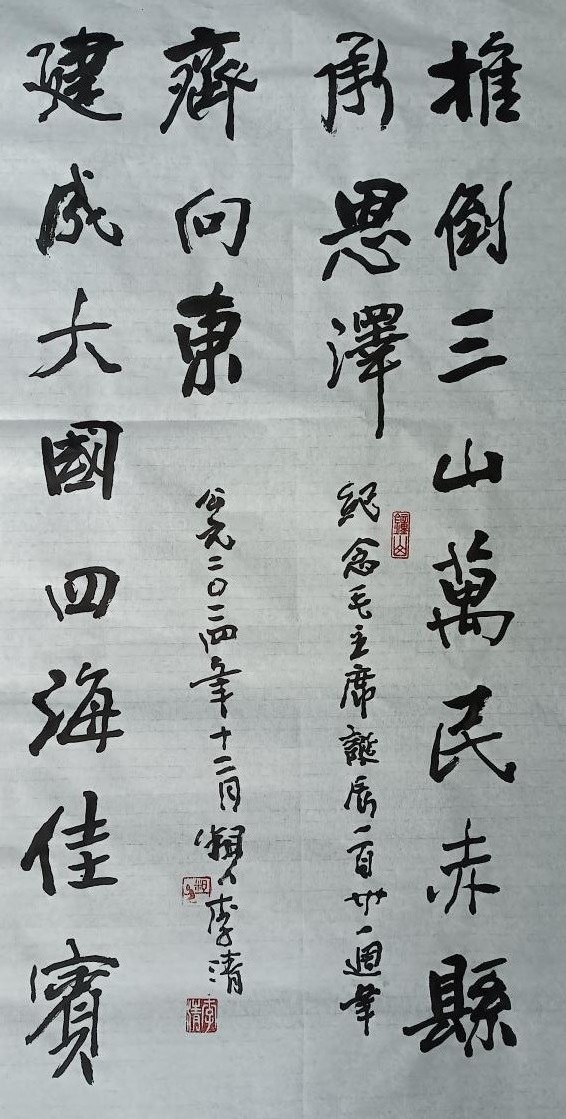 推倒三山萬民赤縣
承恩澤
紀念毛主席誕辰一百卅一週年
建成大國四海佳賓
齊向東
公元二〇二四年十二月李清
李清